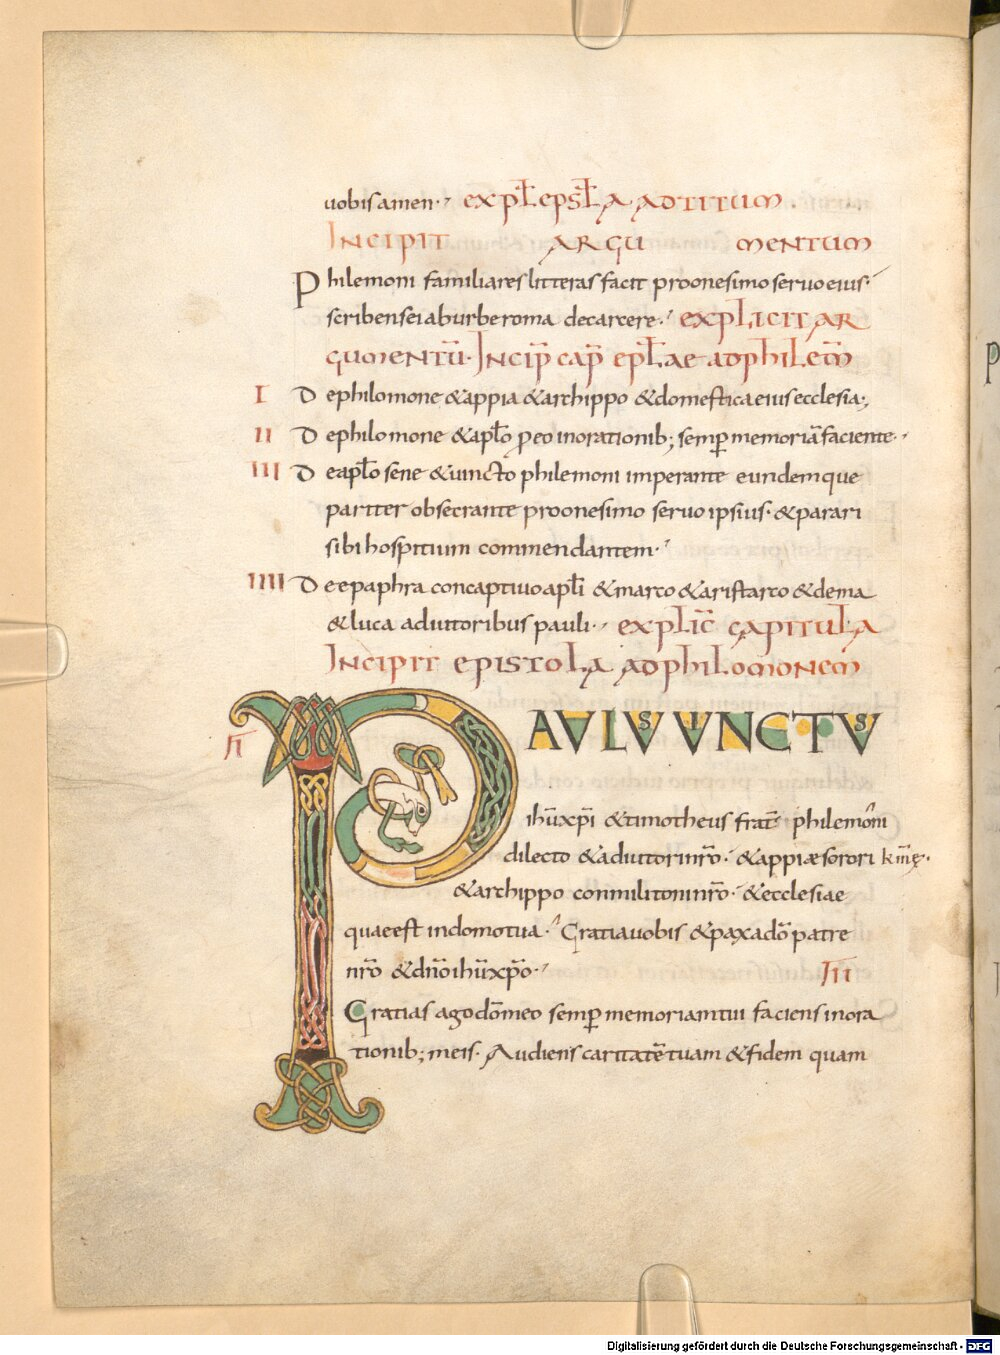 uobis amen· expłepsłA ADTITUM·
INCIPIT ARGUMENTUM
Philemoni familiares litteras facit proonesimo seruoeius·
scribensei aburberoma decarcere· EXPLICIT AR
GUMENTŪ· INCIP̄ CAP̄ EPŁAE ADPHILEM̄
I De philomone &appia &archippo &domesticaeiusecclesia;
II De philomone &apło p eo inorationib; semp memoriā faciente·
III De apło sene &uincto philemoni imperante eundemque
pariter obsecrante proonesimo seruo ipsius· &parari
sibi hospitium commendantem·
IIII De epaphra concaptiuo apłi &marco &aristarco &dema
&luca adiutoribus pauli· EXPLIC̄ CAPITULA
INCIPIT EPISTOLA ADPHILOMONEM
PAULUS UINCTUS
ihūxp̄i &timotheus frat̄ philemoni
dilecto &adiutorinr̄o· &appiæsorori km̄ę·
&archippo conmilitoninr̄o· &ecclesiae
quaeest indomotua· Gratiauobis &paxadō patre
nr̄o &dn̄oihūxp̄o· III
Gratias agodōmeo semp memoriamtui faciensinora
tionib; meis· Audiens caritatē tuam &fidem quam